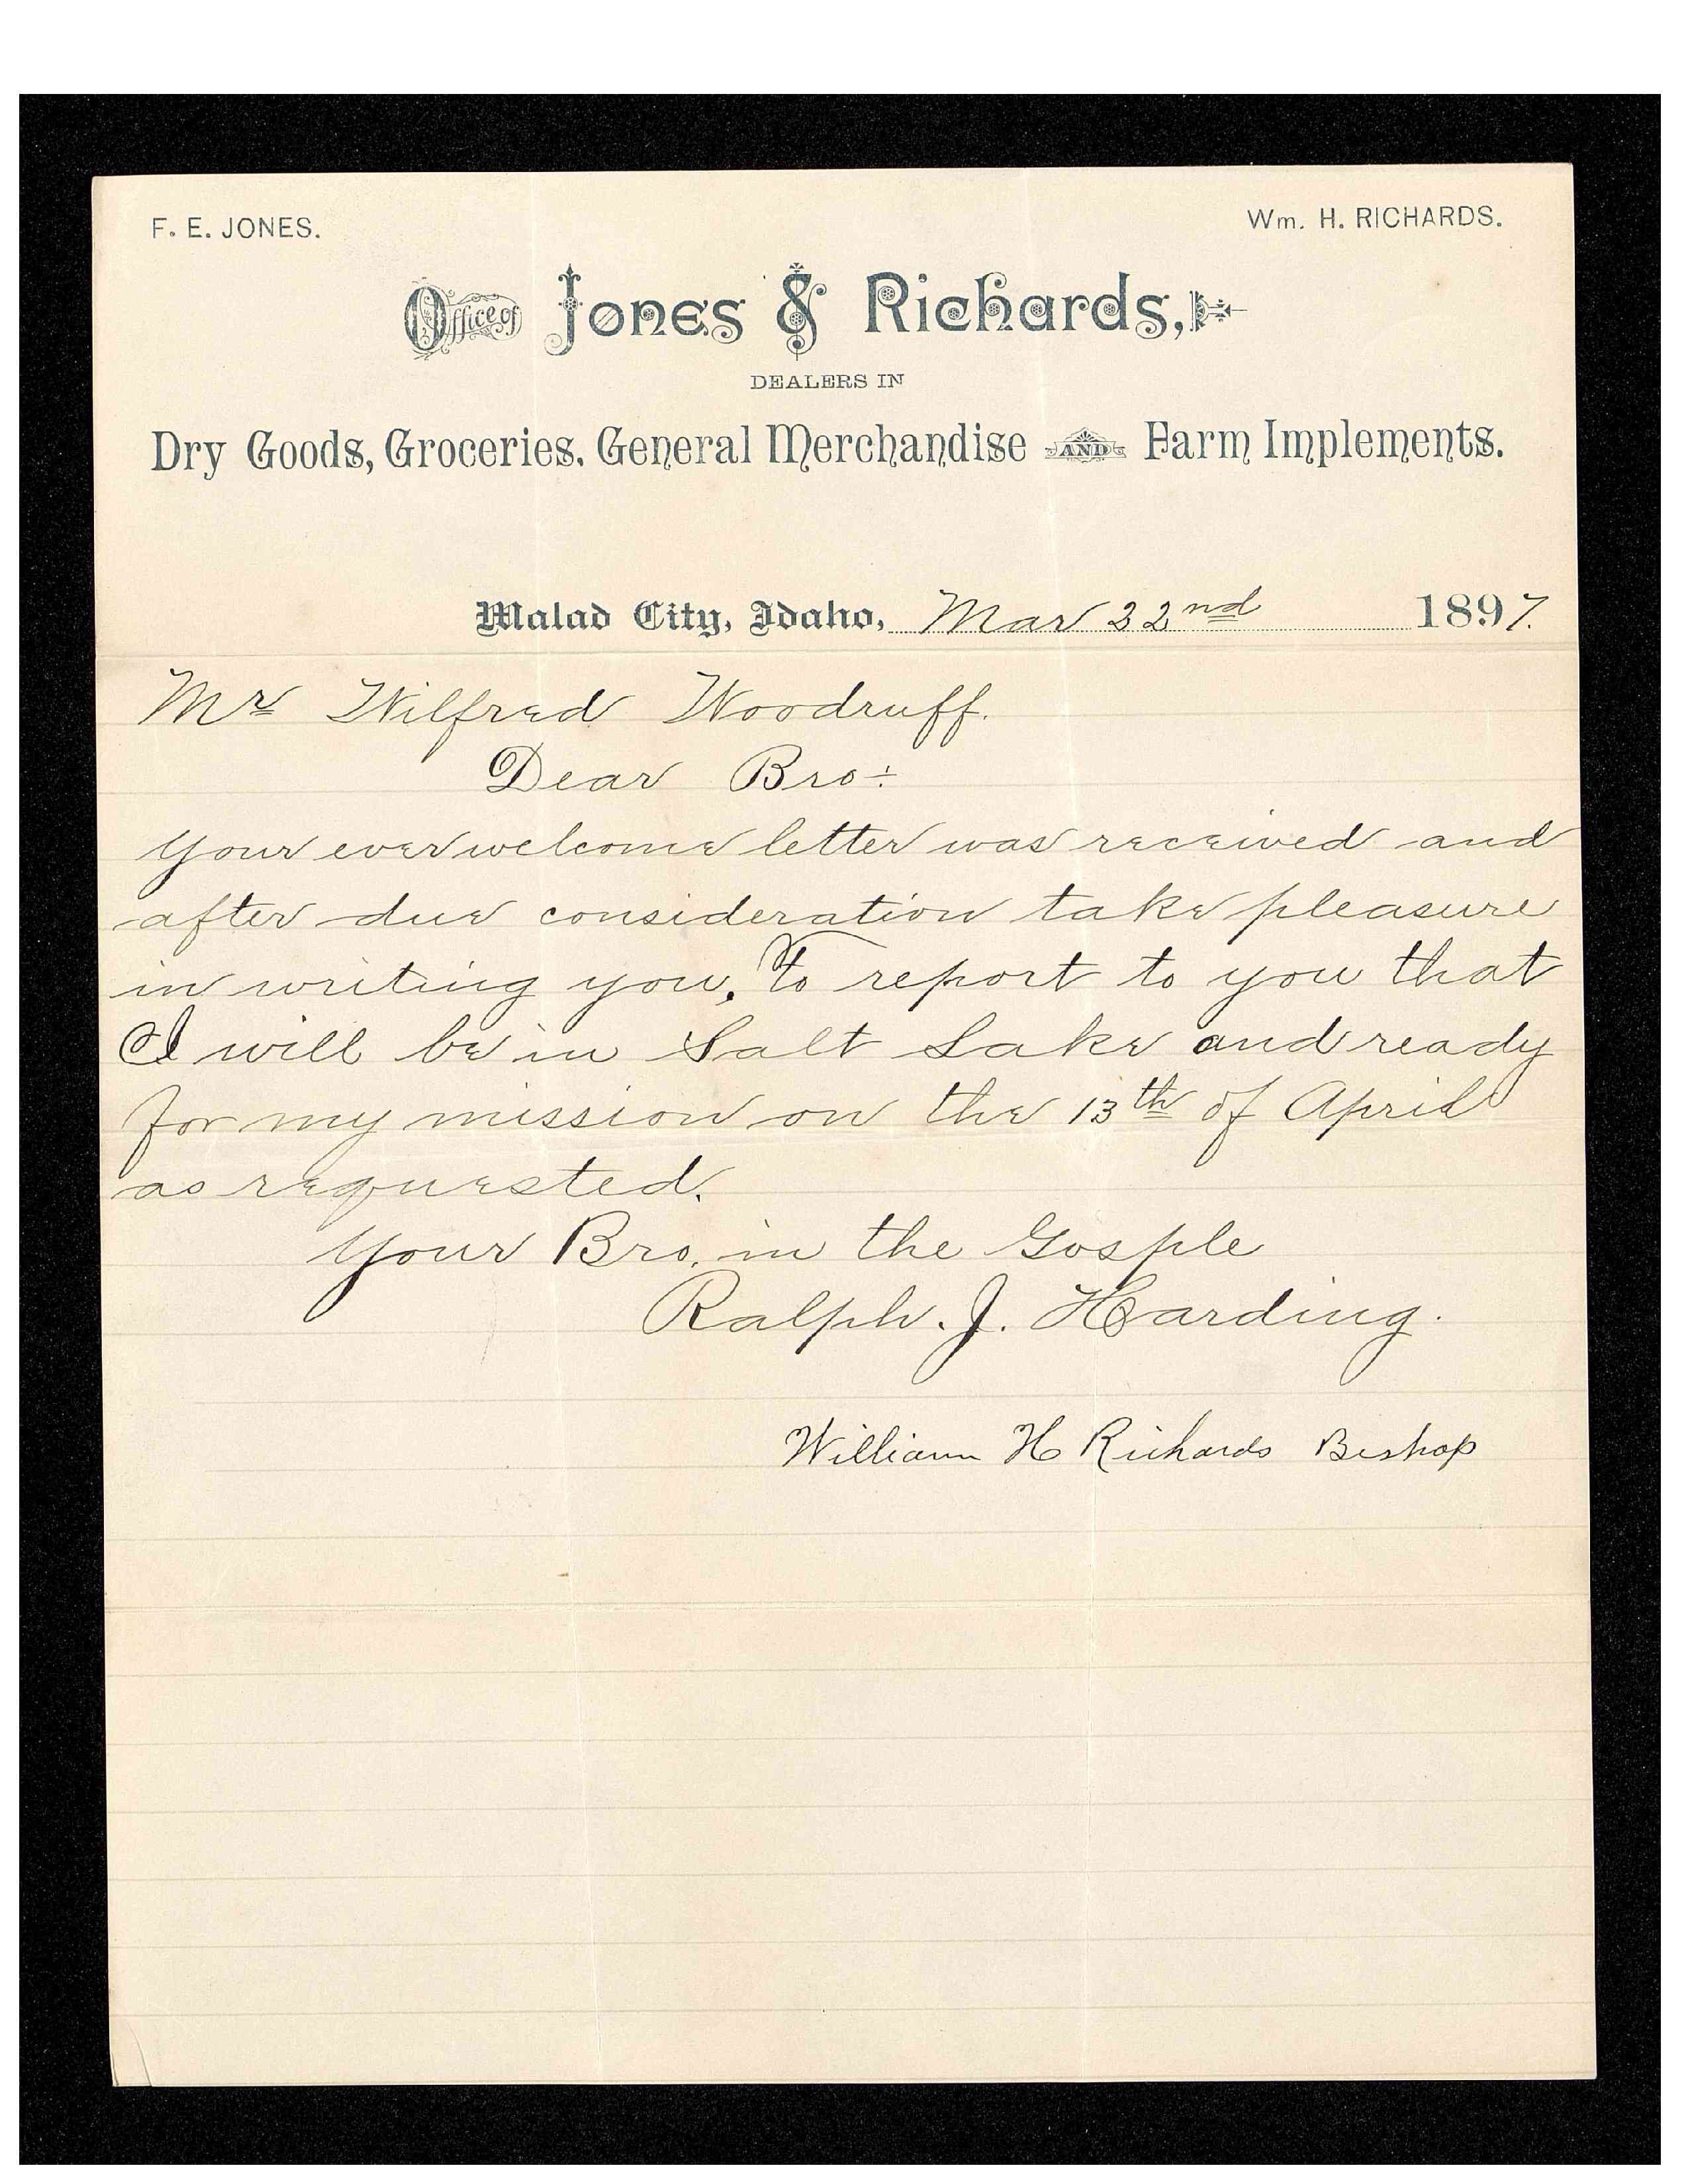 F. E. JONES.
Wm. H. RICHARDS.
Office of Jones & Richards,
DEALERS IN
Dry Goods, Groceries, General Merchandise AND Farm Implements.
Malad City, Idaho, Mar 22nd 1897.
Mr Wilfred Woodruff.
Dear Bro:
Your ever welcome letter was received and
after due consideration take pleasure
in writing you, To report to you that
I will be in Salt Lake and ready
for my mission on the 13th of April
as requested.
Your Bro. in the Gosple
Ralph. J. Harding.
William H Richards Bishop